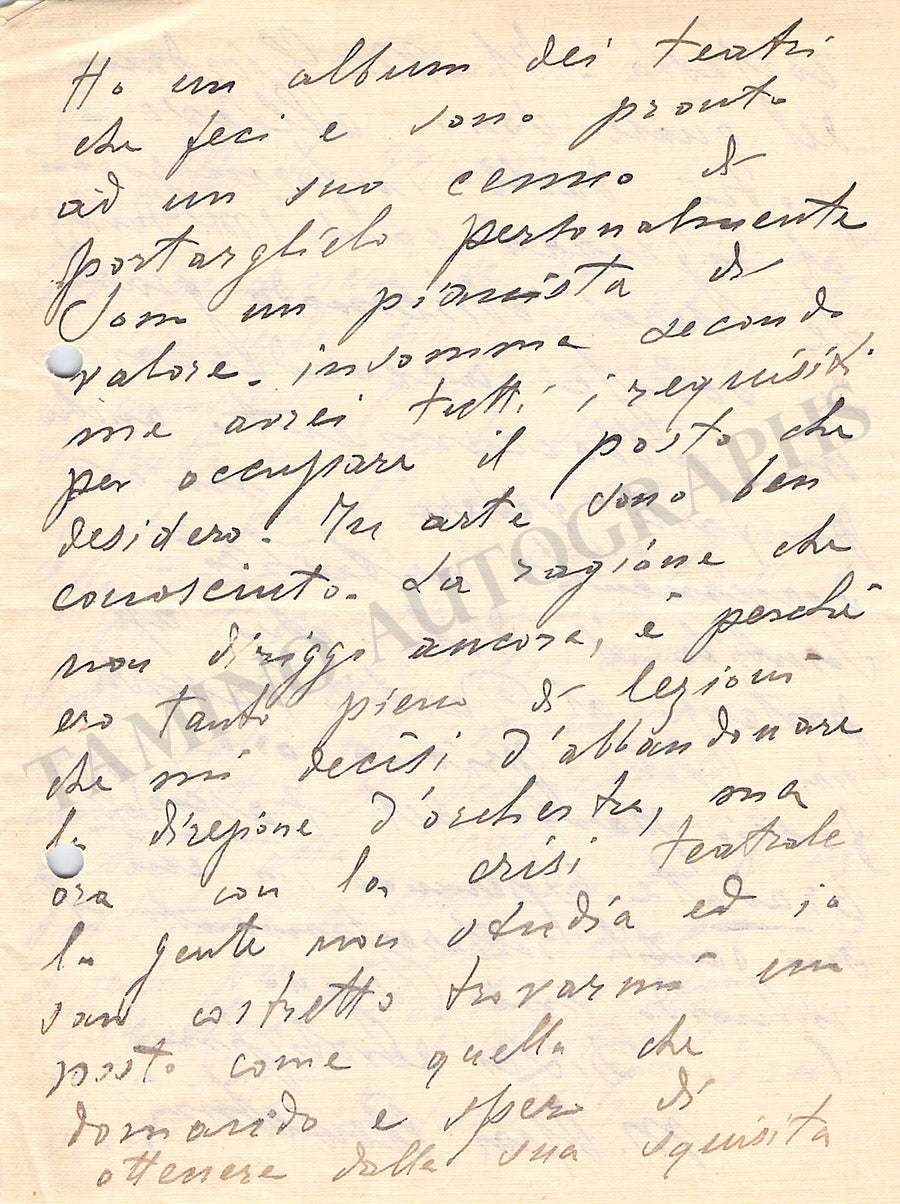 Ho un album dei teatri
che feci e sono pronto
ad un suo cenno di
portarglielo personalmente
Sono un pianista di
valore. insomma secondo
me avrei tutti i requisiti
per occupare il posto che
desidero. In arte sono ben
conosciuto. La ragione che
non diriggo ancora, è perchè
ero tanto pieno di lezioni
che mi decisi d'abbandonare
la direzione d'orchestra, ma
ora con la crisi teatrale
la gente non studia ed io
sono costretto trovarmi un
posto come quello che
domando e spero di
ottenere dalla sua squisita
TAMINO AUTOGRAPHS